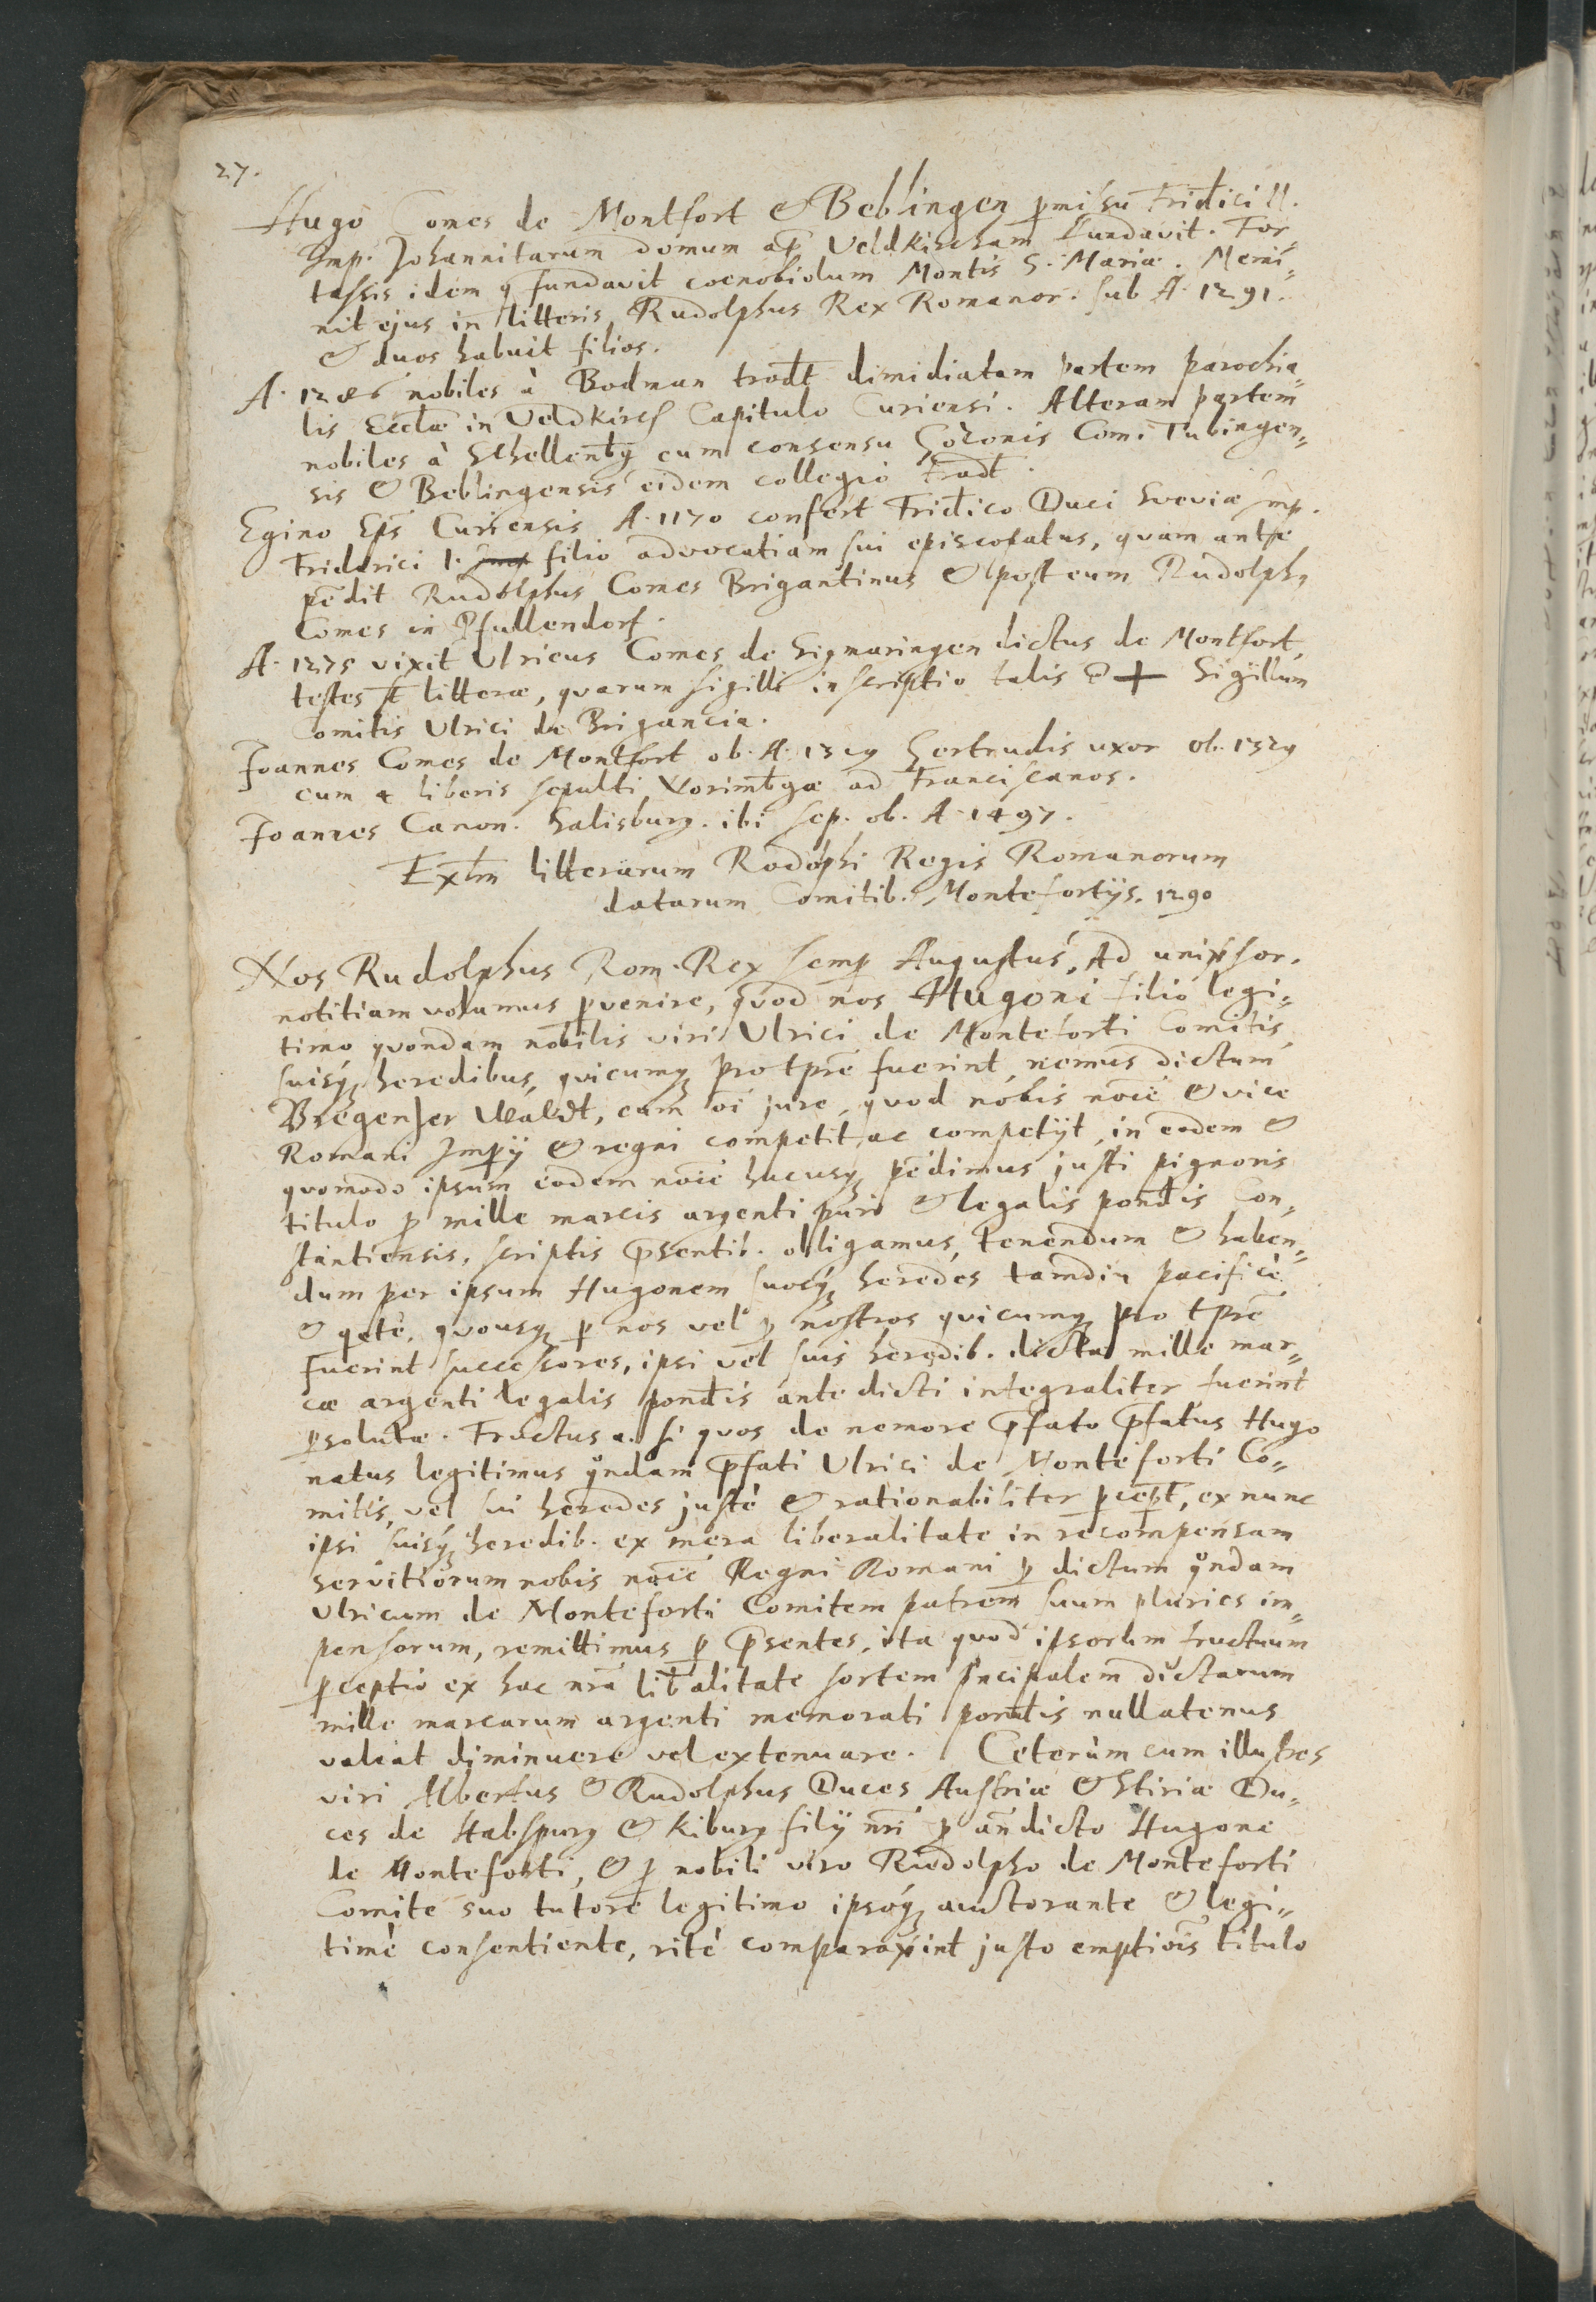 27.
Hugo Comes de Montfort & Beblingen p̱missu Frid̄ici II.
Imp. Johannitarum domum ap̄ Veldkircham fundavit. For„
tassis idem q fundavit coenobiolum Montis S. Mariæ. Memi„
nit ejus in litteris Rudolphus Rex Romanor. sub A. 1291.
& duos habuit filios.
A. 1286 nobiles à Bodman trad̄t dimidiatam partem parochia„
lis Ecclæ in Veldkirch Capitulo Curiensi. Alteram partem
nobiles à Schellenb̄g cum consensu Gozonis Com. Tubingen„
sis & Beblingensis eidem collegio trad̄t.
Egino Eps̄ Curiensis A. 1170 confert Frid̄ico Duci Sveviæ Imp.
Friderici I. filio advocatiam sui episcopatus, quam ante
pēdit Rudolphus Comes Brigantinus & post eum Rudolph9
Comes in Pfullendorf.
A. 1275 vixit Ulricus Comes de Sigmaringen dictus de Montfort,
testes st̄ litteræ, quarum sigilli inscriptio talis ē + Sigillum
Comitis Ulrici de Brigancia.
Joannes Comes de Montfort ob. A. 1529 Gertrudis uxor ob. 1529
cum 4 liberis sepulti Norimb̄gæ ad Franciscanos.
Joannes Canon. Salisburg. ibi sep. ob. A. 1497.
Extm̄ litterarum Rodolphi Regis Romanorum
datarum Comitib. Montefortijs. 1290
Nos Rudolphus Rom. Rex semp̱ Augustus, Ad univ̄sor.
notitiam volumus p̱venire, quod nos Hugoni filio legi„
timo quondam nobilis viri Ulrici de Monteforti Comitis,
suisq3 heredibus, quicumq3 pro tpre fuerint, nemus dictum
Bregenzer Waldt, cum oī jure, quod nobis noīe & vice
Romani Imp̱ij & regni competit ac competijt, in eodem &
quomodo ipsum eodem noīe hucusq3 pēdimus justi pignoris
titulo p̱ mille marcis argenti puri & legalis pond̄is Con„
stantiensis, scriptis p̄sentib. obligamus, tenendum & haben„
dum per ipsum Hugonem suosq3 heredes tamdiu pacificè
& q̄ete, quousq3 p̱ nos vel p̱ nostros quicumq3 pro tpre
fuerint successores, ipsi vel suis heredib. dictæ mille mar„
cæ argenti legalis pond̄is ante dicti integraliter fuerint
p̱solutæ. Fructus a. si quos de nemore p̄fato p̄fatus Hugo
natus legitimus qo̅ndam p̄fati Ulrici de Monteforti Co„
mitis, vel sui heredes justè & rationabiliter p̱cep̱t, ex nunc
ipsi suisq3 heredib. ex mera liberalitate in recompensam
servitiorum nobis noīe Regni Romani p̱ dictum qo̅ndam
Ulricum de Monteforti Comitem patrem suum pluries im„
pensorum, remittimus p̱ p̄sentes, ita quod ipsorum fructuum
p̱ceptio ex hac nrā lib̄alitate sortem pncipalem dictarum
mille marcarum argenti memorati pond̄is nullatenus
valeat diminuere vel extenuare. Ceterùm cum illustres
viri Albertus & Rudolphus Duces Austriæ & Stiriæ Du„
ces de Habspurg & Kiburg filij nrī p̱ an̄dicto Hugone
de Monteforti, & p̱ nobili viro Rudolpho de Monteforti
Comite suo tutore legitimo ipsoq3 auctorante & legi„
timè consentiente, ritè comparav̄int justo emptiōis titulo